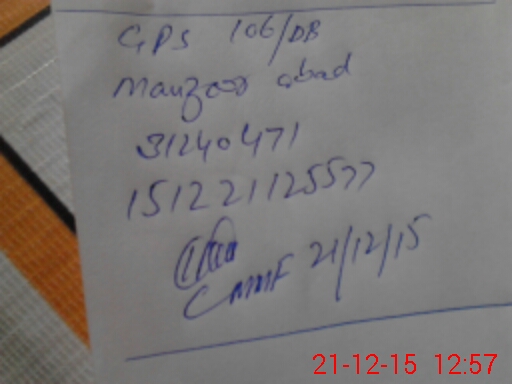 GPS 106/DB
Manzoor abad
31240471
151221125577
CMMF 21/12/15
21-12-15 12:57